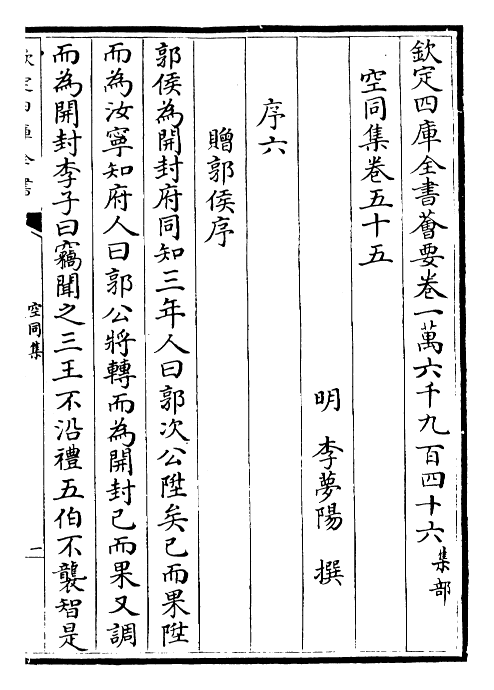 欽定四庫全書薈要卷一萬六千九百四十六集部
空同集卷五十五
明 李夢陽 撰
序六
贈郭侯序
郭侯為開封府同知三年人曰郭次公陞矣已而果陞
而為汝寧知府人曰郭公將轉而為開封已而果又調
而為開封李子曰竊聞之三王不沿禮五伯不襲智是
欽定四庫全書
空同集
一